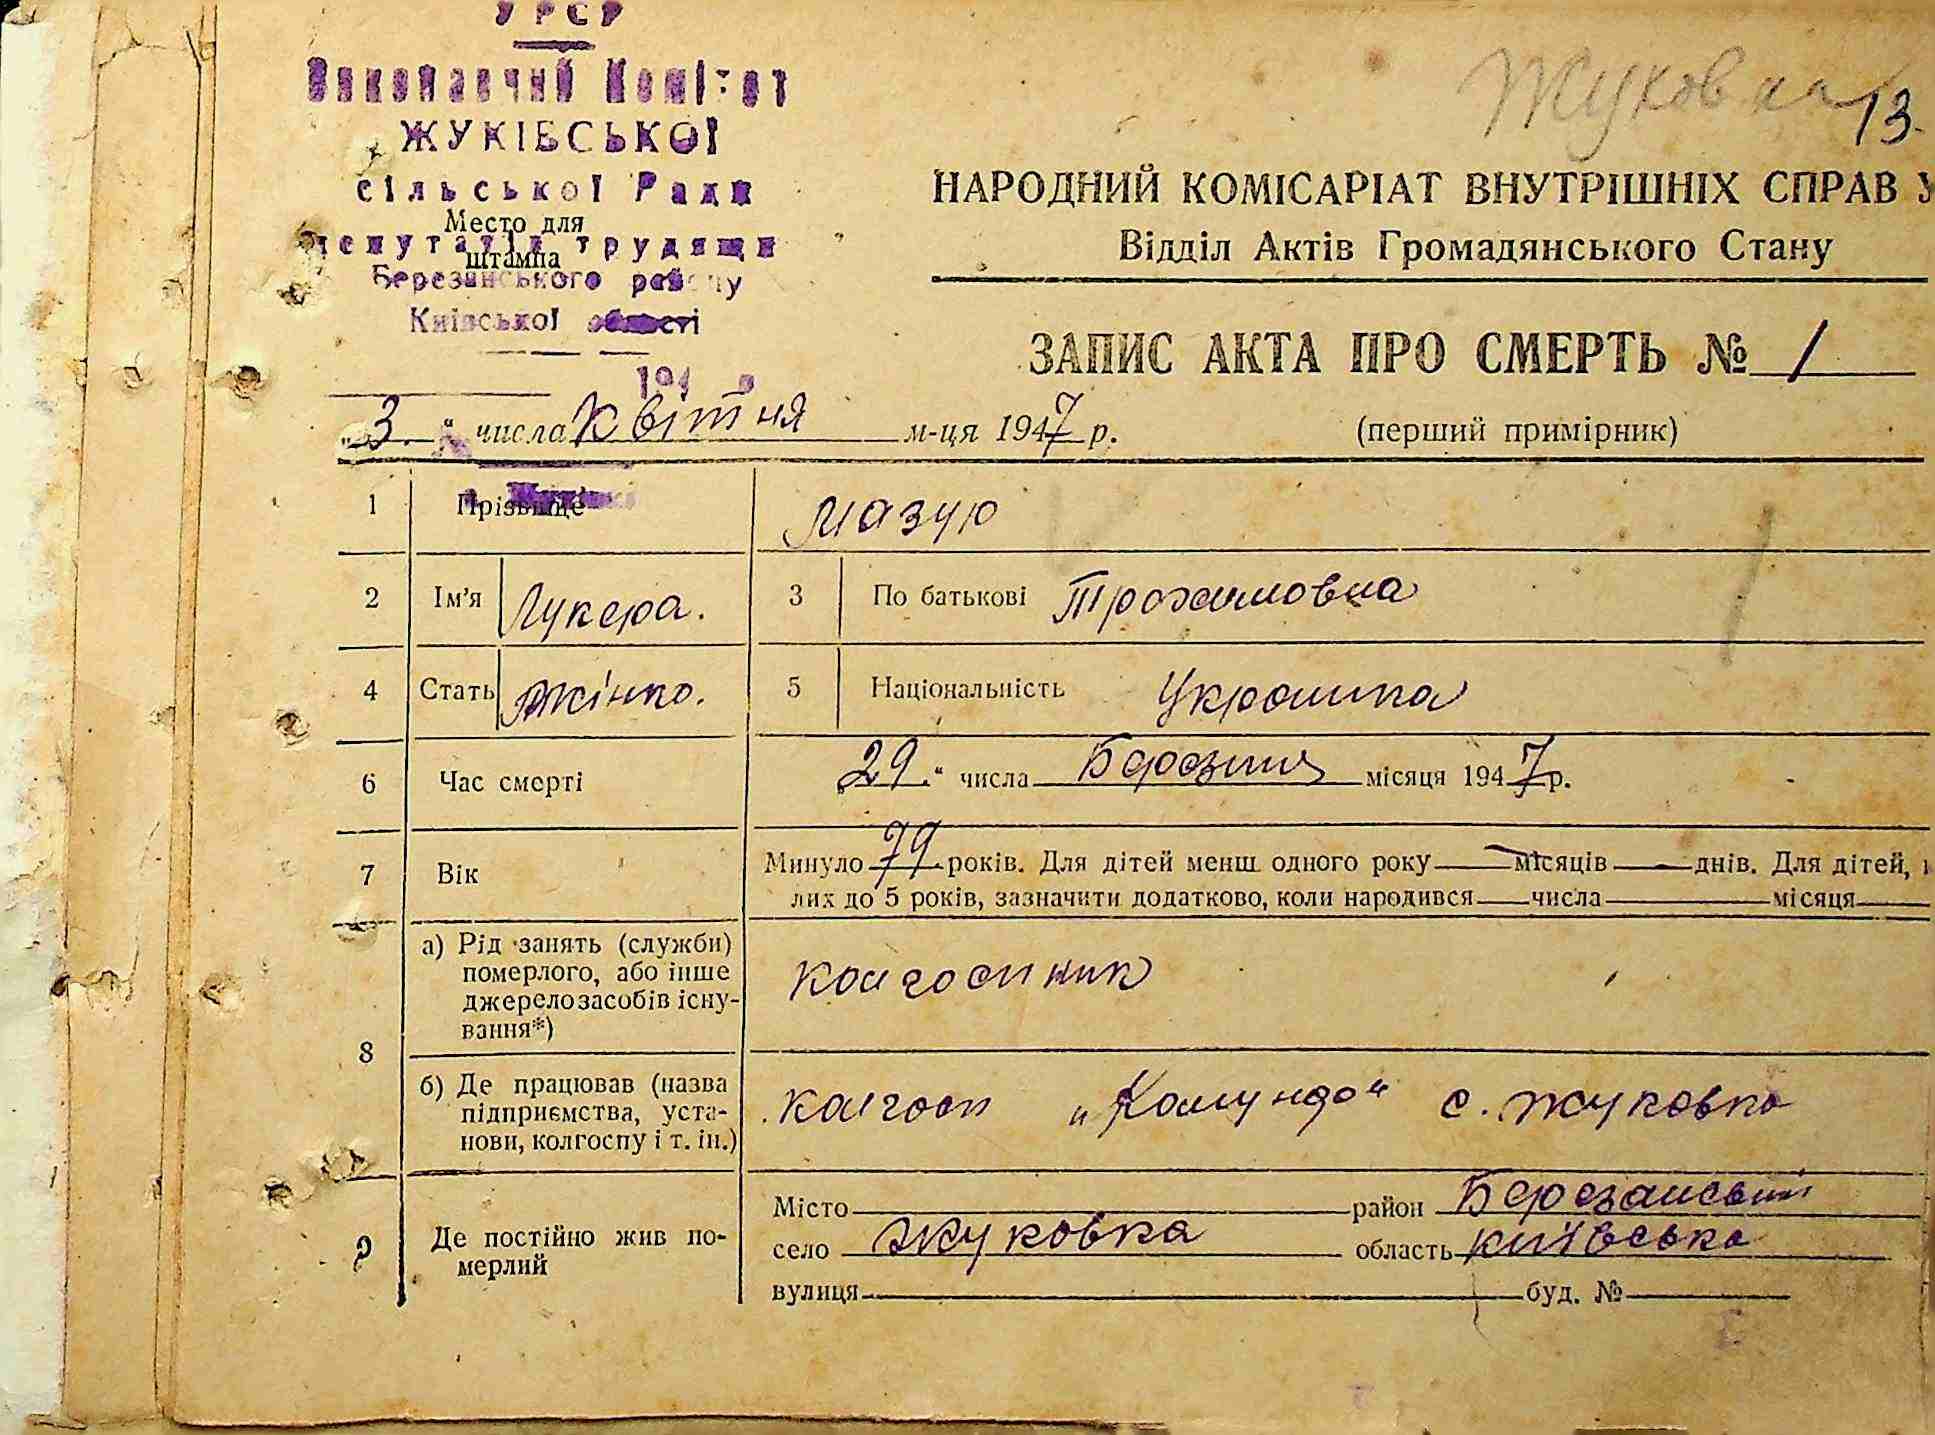 УРСР
Виконавчий Комітет
ЖУКІВСЬКОЇ
сільської Ради
Место для
депутатів трудящи
штампа
Березанського району
Київської області
194 р
Жуковка
13
НАРОДНИЙ КОМІСАРІАТ ВНУТРІШНІХ СПРАВ У
Відділ Актів Громадянського Стану
ЗАПИС АКТА ПРО СМЕРТЬ № 1
„3.“ числа Квітня м-ця 1947 р. (перший примірник)
1 Прізвище Мазур
2 Ім'я Лукера. 3 По батькові Трохимовна
4 Стать Жінка. 5 Національність Украінка
6 Час смерті „29.“ числа Березня місяця 1947 р.
7 Вік Минуло 79 років. Для дітей менш одного року — місяців — днів. Для дітей,
лих до 5 років, зазначити додатково, коли народився — числа — місяця —
8 а) Рід занять (служби) померлого, або інше джерело засобів існу-вання*) колгоспник
б) Де працював (назва підприємства, уста-нови, колгоспу і т. ін.) колгосп „Комунар“ с. Жуковка
9 Де постійно жив по-мерлий
Місто район Березанський
село Жуковка область київська
вулиця буд. №